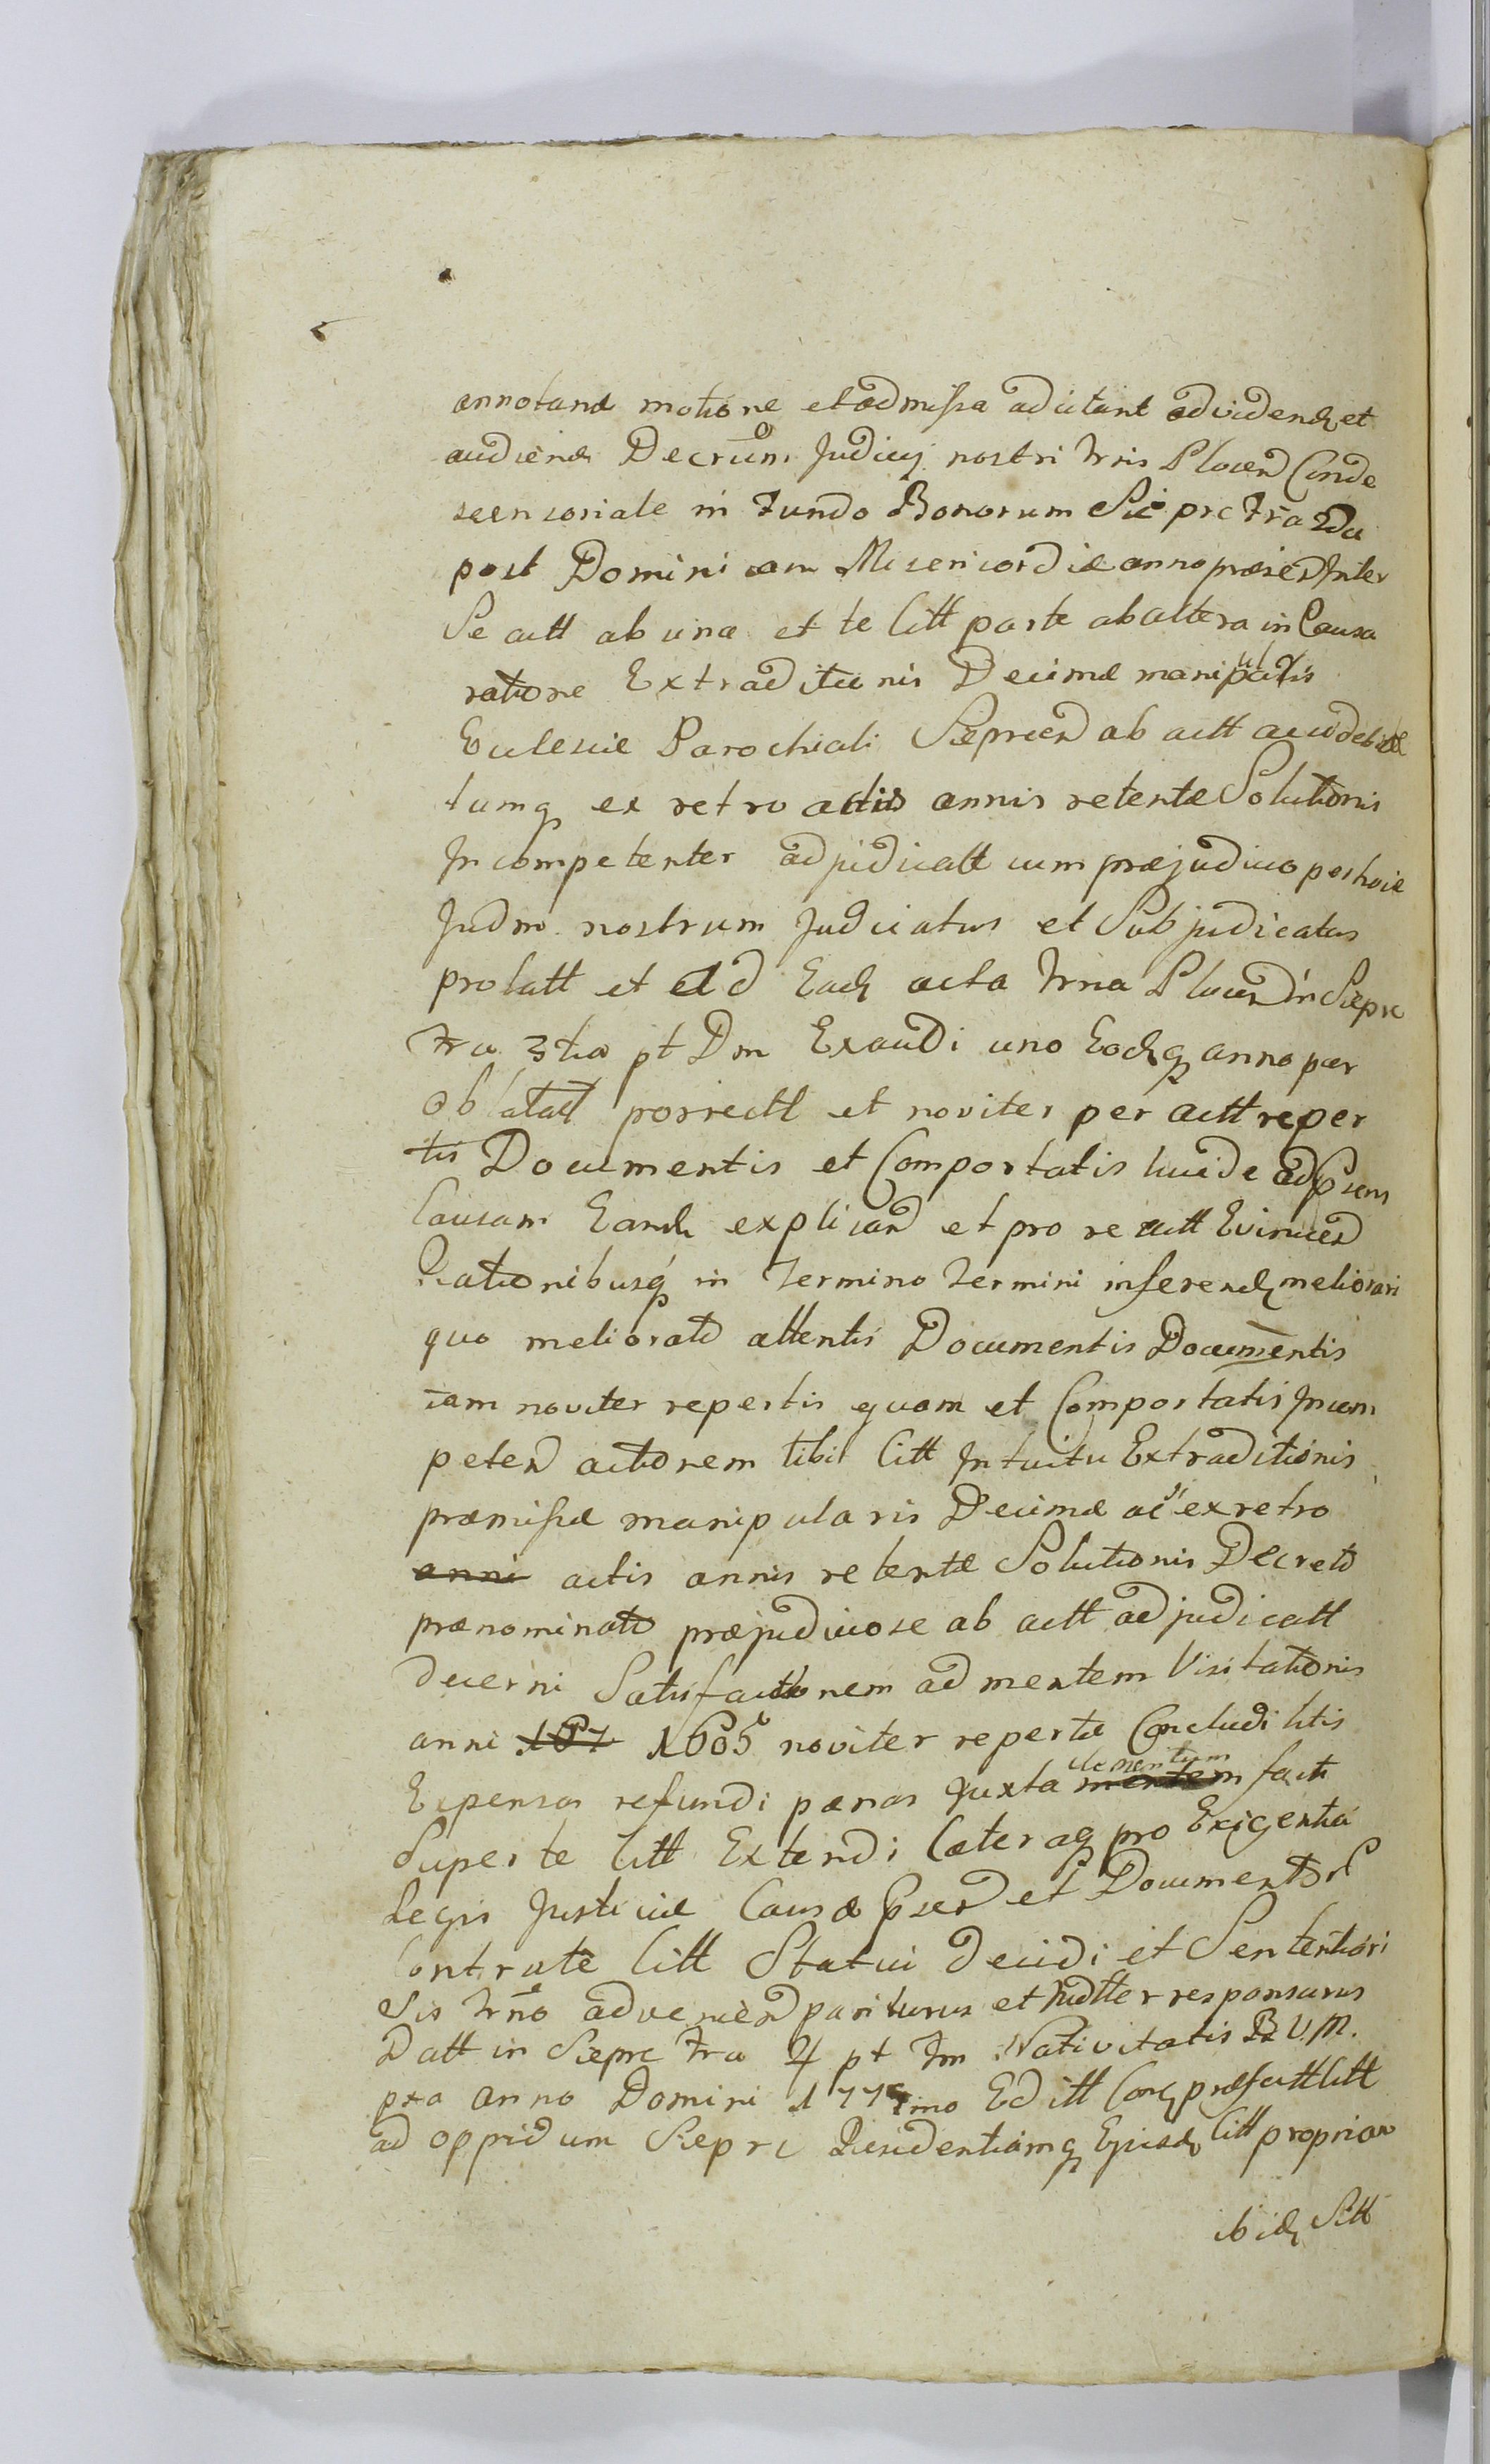 annotanæ motione et admissa adcitant ad videnđ et
audiend Decrum Judicy nostri Trris Plocen Conde
scensoriale in Fundo Bonorum Sieprc Fria 2da
post Dominicam Misericordiæ anno præsen Inter
Se actt ab una et te Citt parte ab altera in Causa
ratione Extraditionis Decimæ manipularis
Ecclesiæ Parochiali Sieprcen ab actt ac debitæ
tumq ex retro actis annis retentæ Solutionis
Incompetenter adjudicatt cum præjudicio post hoic
Judm nostrum Judiciatus et Subjudicatus
prolatt et ad Eadđ acta Trria Plocen in Sieprc
Fra 3tia pt Dm Exaudi uno Eodđq anno per
Oblatat porrectt et noviter per actt reper
tis Documentis et Comportatis lucide ad Psens
Causam Eandđ explican et pro re actt Evincen
Rationibusq in Termino Termini inferendđ meliorari
quo meliorato attentis Documentis Documentis
tam noviter repertis quam et Comportatis Incom
peten actionem tibi Citt Intuitu Extraditionis
præmissæ manipularis Decimæ ac ex retro
anni actis annis retentæ Solutionis Decreto
prænominato præjudiciose ab actt adjudicatt
decerni Satisfactionem ad mentem Visitationis
anni 167 1605 noviter repertæ Concludi litis
Expensas refundi pænas Juxta mentem clementiam facti
Super te Citt Extendi Cæteraq pro Exigentia
Legis Justiciæ Causæ Psen et Documentor
Contra te Citt Statui decidi et Sententiari
Sis Trno advenien pariturus et Judtter responsurus
Datt in Sieprc Fra 4 pt Fm Nativitatis B.V.M.
pro anno Domini 177 imo Editt Corđ præfactt Citt
ad oppidum Sieprc Residentiamq Ejusdđ Citt propriam
ibidđ Sitt